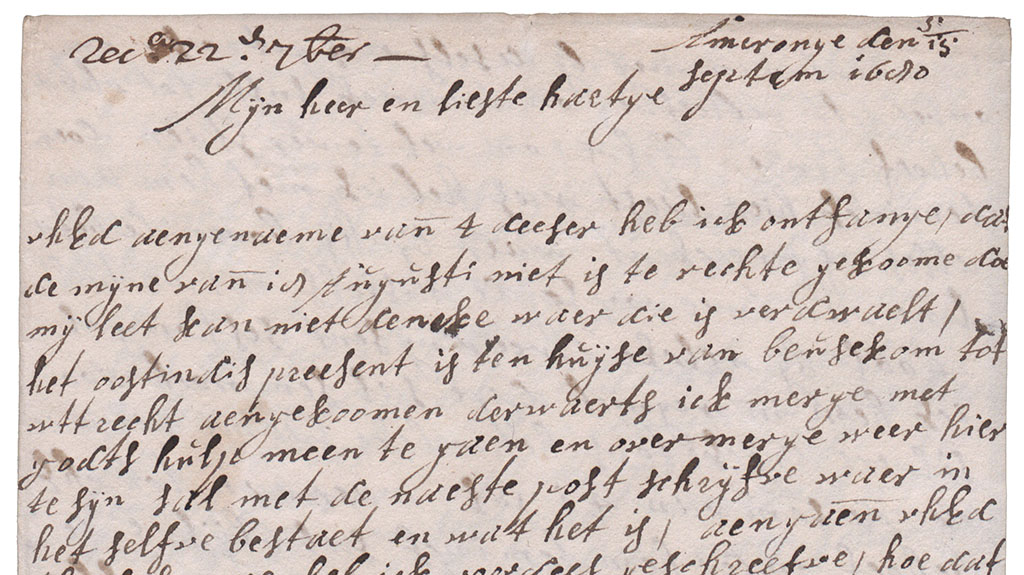 Rec^d 22^d 7ber — Ameronge den 5/15
septem 1680
Mijn heer en lieste hartge
uhEd aengenaeme vañ 4 deeser heb ick ontfange, dat
de mijne vañ 18 Augusti niet is te rechte gekoome doe
mij leet kan niet dencke waer die is verdwaelt,
het oostindis preesent is ten huijse van beusekom tot
uttrecht aengekoomen derwaerts ick merge met
godts hulp meen te gaen en overmerge weer hier
te sijn sal met de naeste post schrijfve waer in
het selfve bestaet en wat het is, aengaen uhEd
heb ick geschreefve, hoe dat